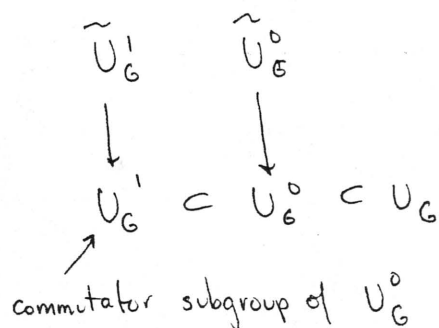 Ũ_G^1 Ũ_G^0
U_G^1 ⊂ U_G^0 ⊂ U_G
commutator subgroup of U_G^0